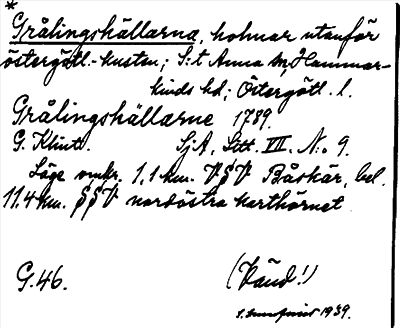 *
Grålingshällarna, holmar utanför
östergötl.-kusten; S:t Anna sn, Hammar-
kinds hd; Östergötl. l.
Grålingshällarne 1789.
G. Klint. SjA, Litt. VII. No 9.
Läge omkr. 1,1 km. VSV Båskär, bel.
11.4 km. SSV nordöstra karthörnet
G.46. (Käud!)
1939.